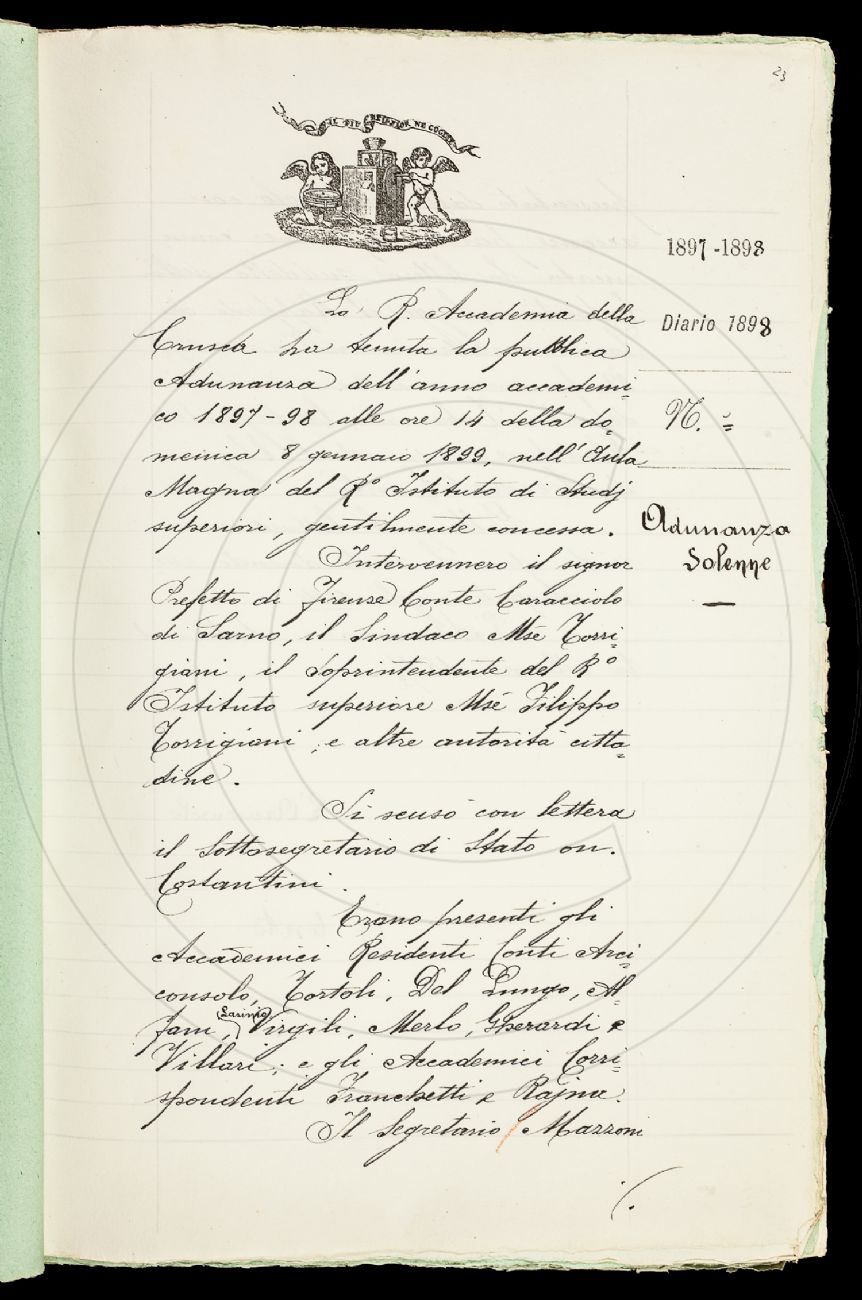 23
IL PIÙ BEL FIOR NE COGLIE
1897-1898
Diario 1898
N. "
Adunanza
Solenne
La R. Accademia della
Crusca ha tenuta la pubblica
Adunanza dell'anno accademi=
co 1897-98 alle ore 14 della do=
menica 8 gennaio 1899, nell'Aula
Magna del R.º Istituto di Studj
superiori, gentilmente concessa.
Intervennero il signor
Prefetto di Firenze Conte Caracciolo
di Sarno, il Sindaco Mse Torri=
giani, il Soprintendente del R.º
Istituto superiore Mse Filippo
Torrigiani, e altre autorità citta=
dine.
Si scusò con lettera
il Sottosegretario di Stato on.
Costantini.
Erano presenti gli
Accademici Residenti Conti Arci=
consolo, Tortoli, Del Lungo, Al=
fani, (Larinio) Virgili, Merlo, Gherardi e
Villari; e gli Accademici Corri=
spondenti Franchetti e Rajna.
Il Segretario Mazzoni
./.